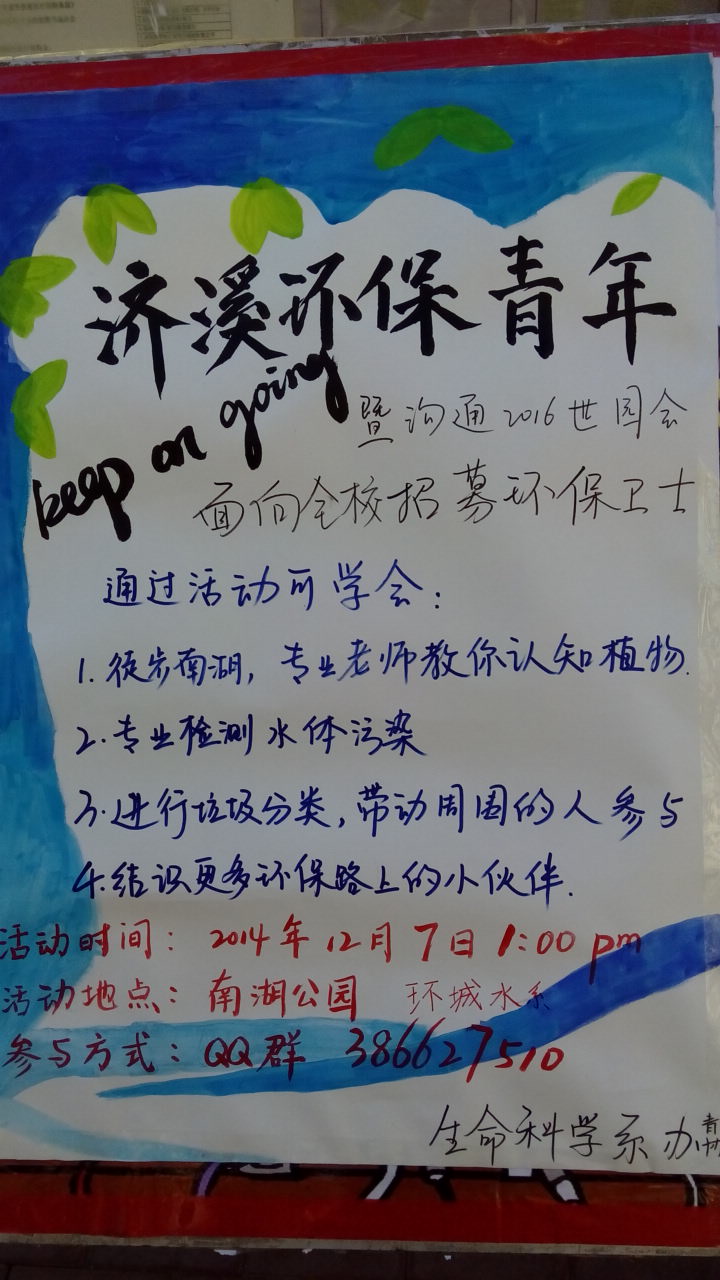 济溪环保青年
keep on going
暨沟通2016世园会
面向全校招募环保卫士
通过活动可学会：
1. 徒步南湖，专业老师教你认知植物.
2. 专业检测水体污染
3. 进行垃圾分类，带动周围的人参与
4. 结识更多环保路上的小伙伴.
活动时间： 2014年12月7日 1:00 pm
活动地点： 南湖公园 环城水系
参与方式： QQ群 386627510
生命科学系办